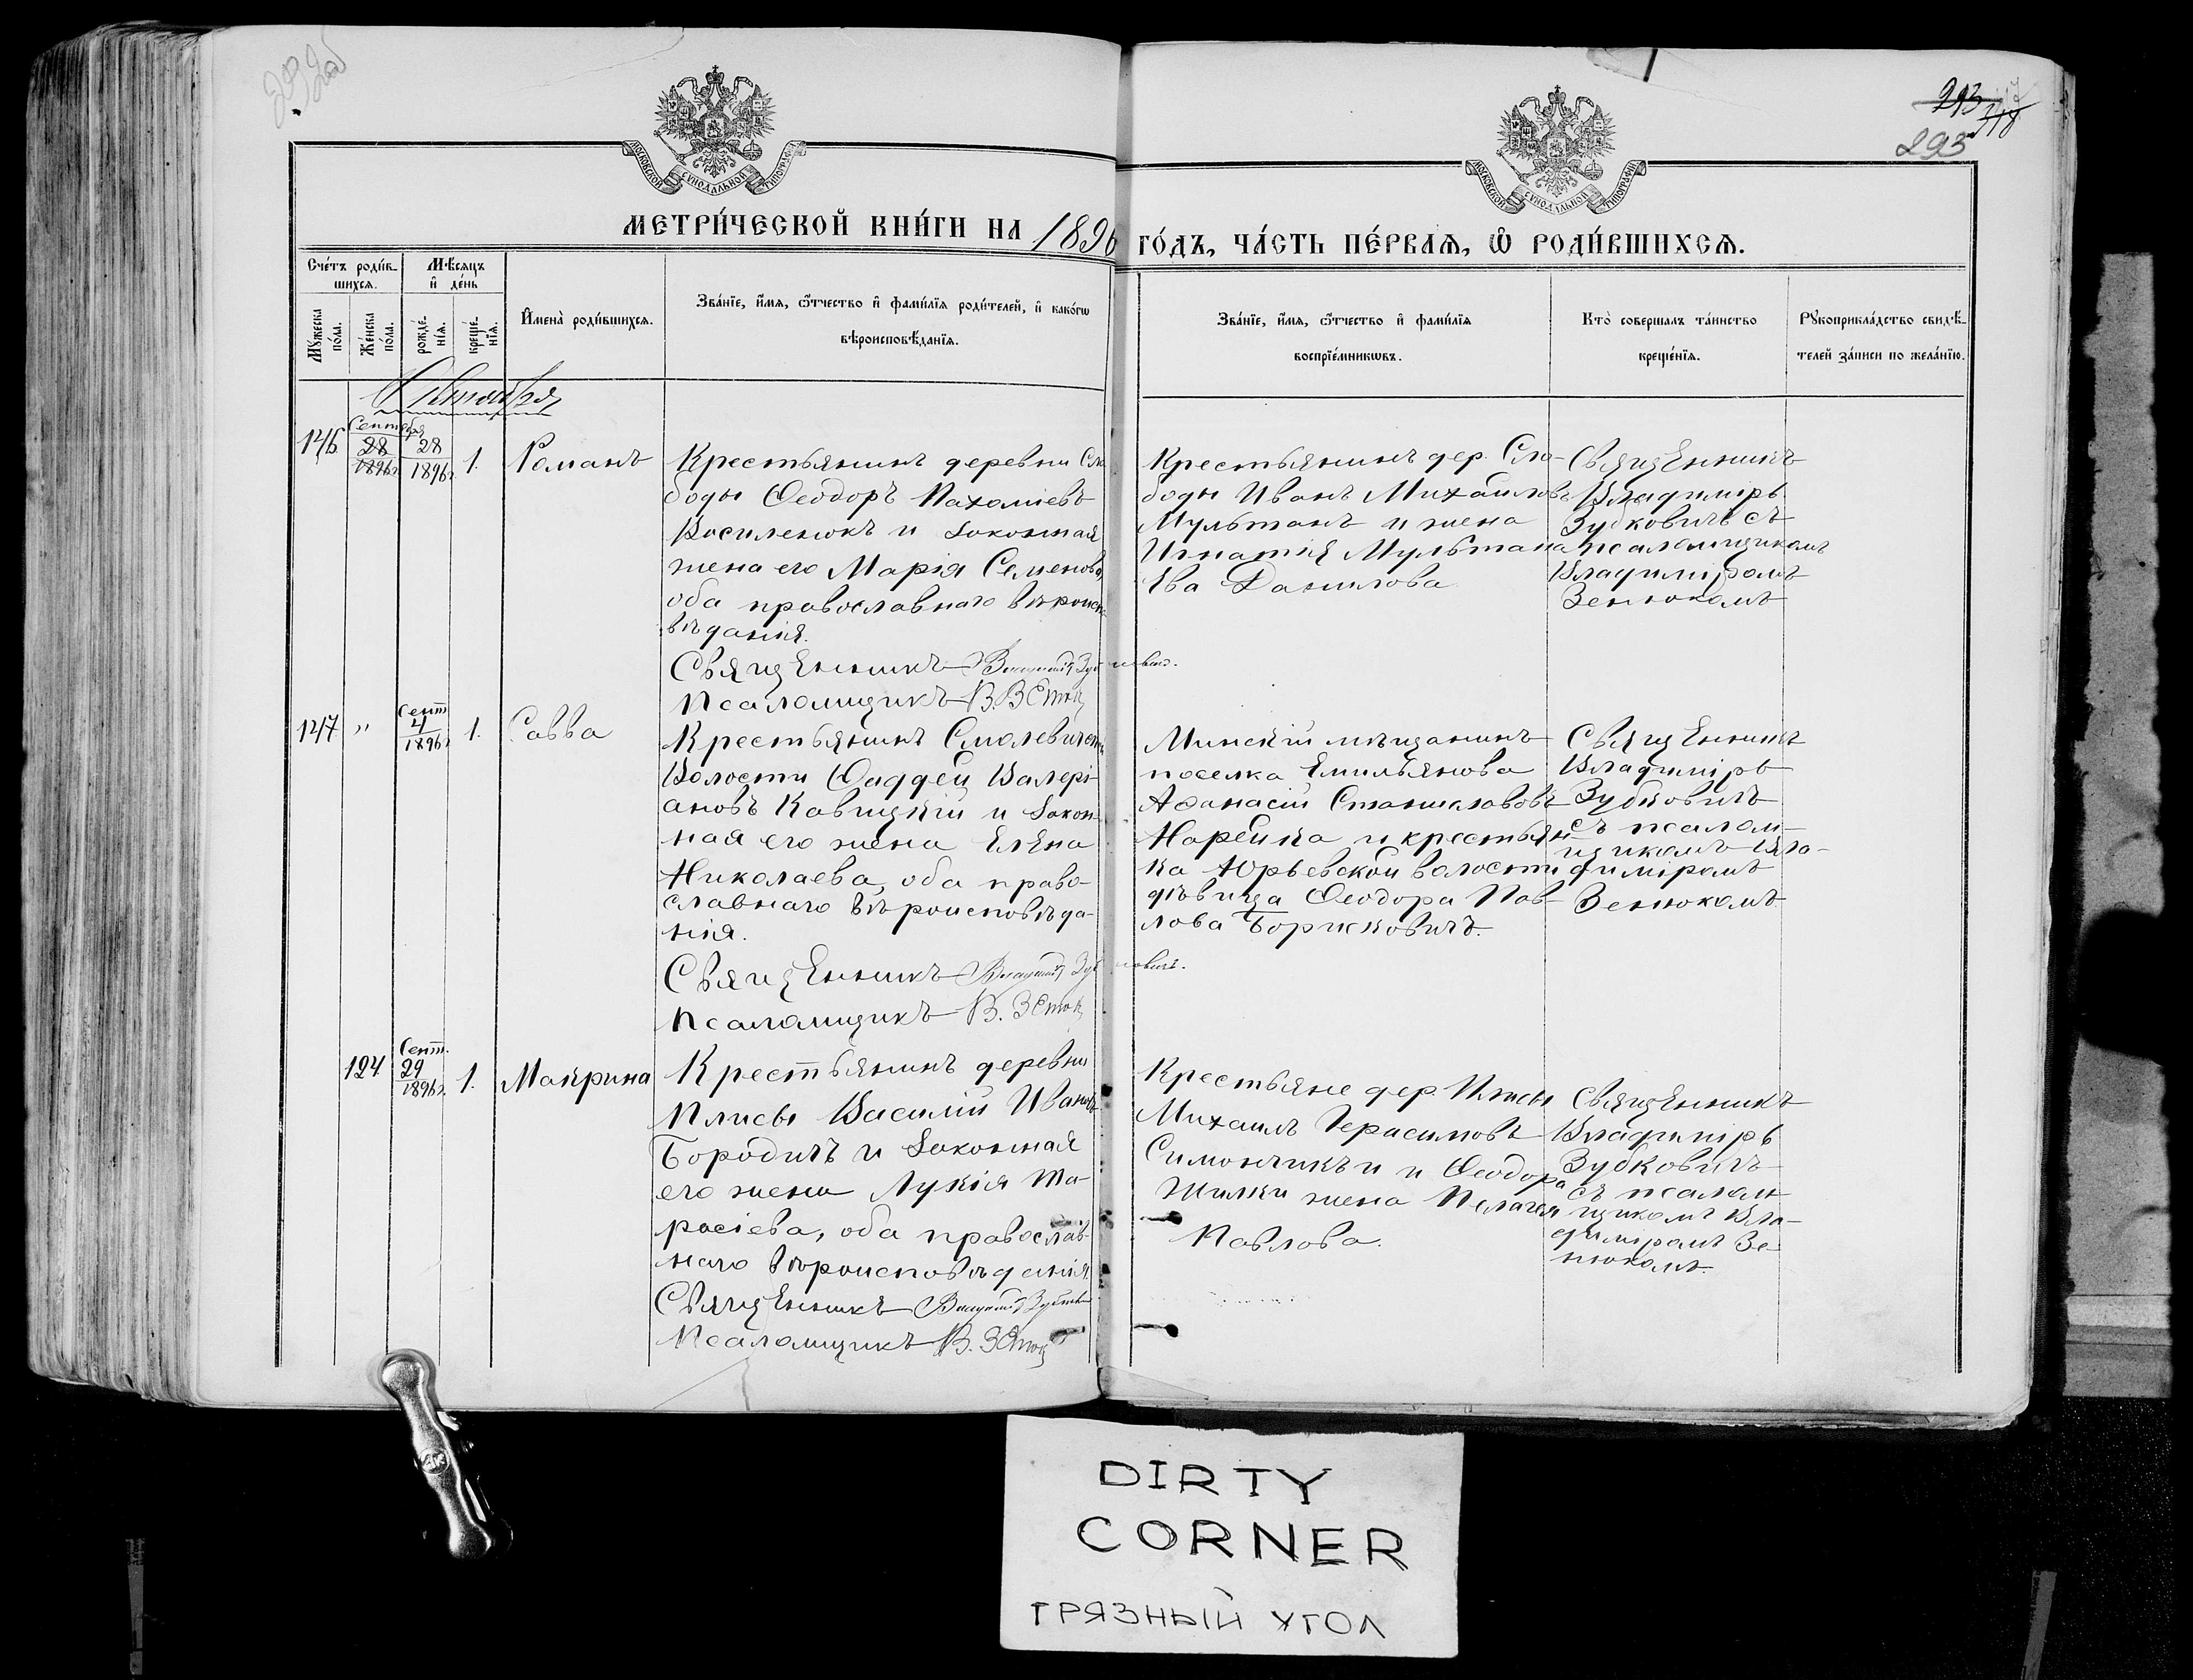 293
293
МОСКОВСКОЙ СѴНОДАЛЬНОЙ ТИПОГРАФІИ
МОСКОВСКОЙ СѴНОДАЛЬНОЙ ТИПОГРАФІИ
МЕТРИ́ЧЕСКОЙ КНИ́ГИ НА 1896 ГО́ДЪ, ЧА́СТЬ ПЕ́РВАЯ, Ѽ РОДИ́ВШИХСЯ.
Сче́тъ роди́в-
шихся.
Мѣсяцъ
и҆ де́нь
Мꙋ́жеска
по́ла.
Же́нска
по́ла.
рожде́-
нїя.
креще́-
нїя.
И҆мена̀ роди́вшихся.
Зва́нїе, и҆́мя, ѻ҆́тчество и҆ фами́лїя роди́телей, и҆ како́гѡ
вѣроисповѣ́данїя.
Зва́нїе, и҆́мя, ѻ҆́тчество и҆ фами́лїя
воспрїе́мникѡвъ.
Кто̀ соверша́лъ та́инство
креще́нїя.
Рꙋкоприкла́дство свидѣ́-
телей за́писи по жела́нїю.
Октября
146
Сентября
28
1896 г.
28
1896 г.
1.
Романъ
Крестьянинъ деревни Сло
боды Ѳеодоръ Пахоміевъ
Василенокъ и законная
жена его Марія Семенова,
оба православнаго вѣроиспо
вѣданія.
Священникъ
Псаломщикъ
Крестьянинъ дер. Сло-
боды Иванъ Михайловъ
Мультанъ и жена
Игнатія Мультана
Ева Данилова
Священникъ
Владиміръ
Зубковичъ съ
псаломщикомъ
Владиміромъ
Зенюкомъ
147
"
Сент
4
1896 г.
1.
Савва
Крестьянинъ Смолевичской
Волости Ѳаддей Валері-
ановъ Кавицкій и закон-
ная его жена Елена
Николаева, оба право-
славнаго вѣроисповѣда-
нія.
Священникъ
Псаломщикъ
Минскій мѣщанинъ
поселка Емильянова
Аѳанасій Станиславовъ
Нарейка и крестьян-
ка Юрьевской волости
дѣвица Ѳеодора Пав-
лова Борисковичъ.
Священникъ
Владиміръ
Зубковичъ
съ псалом-
щикомъ Вла-
диміромъ
Зенюкомъ.
124
Сент.
29
1896 г.
1.
Макрина
Крестьянинъ деревни
Плисы Василій Ивановъ
Бородичъ и законная
его жена Лукія Та-
расіева, оба православ-
наго вѣроисповѣданія.
Священникъ
Псаломщикъ
Крестьяне дер. Плисы
Михаилъ Герасимовъ
Симончикъ и Ѳеодора
Шилки жена Пелагея
Павлова.
Священникъ
Владиміръ
Зубковичъ
съ псалом
щикомъ Вла-
диміромъ Зе-
нюкомъ.
DIRTY
CORNER
ГРЯЗНЫЙ УГОЛ